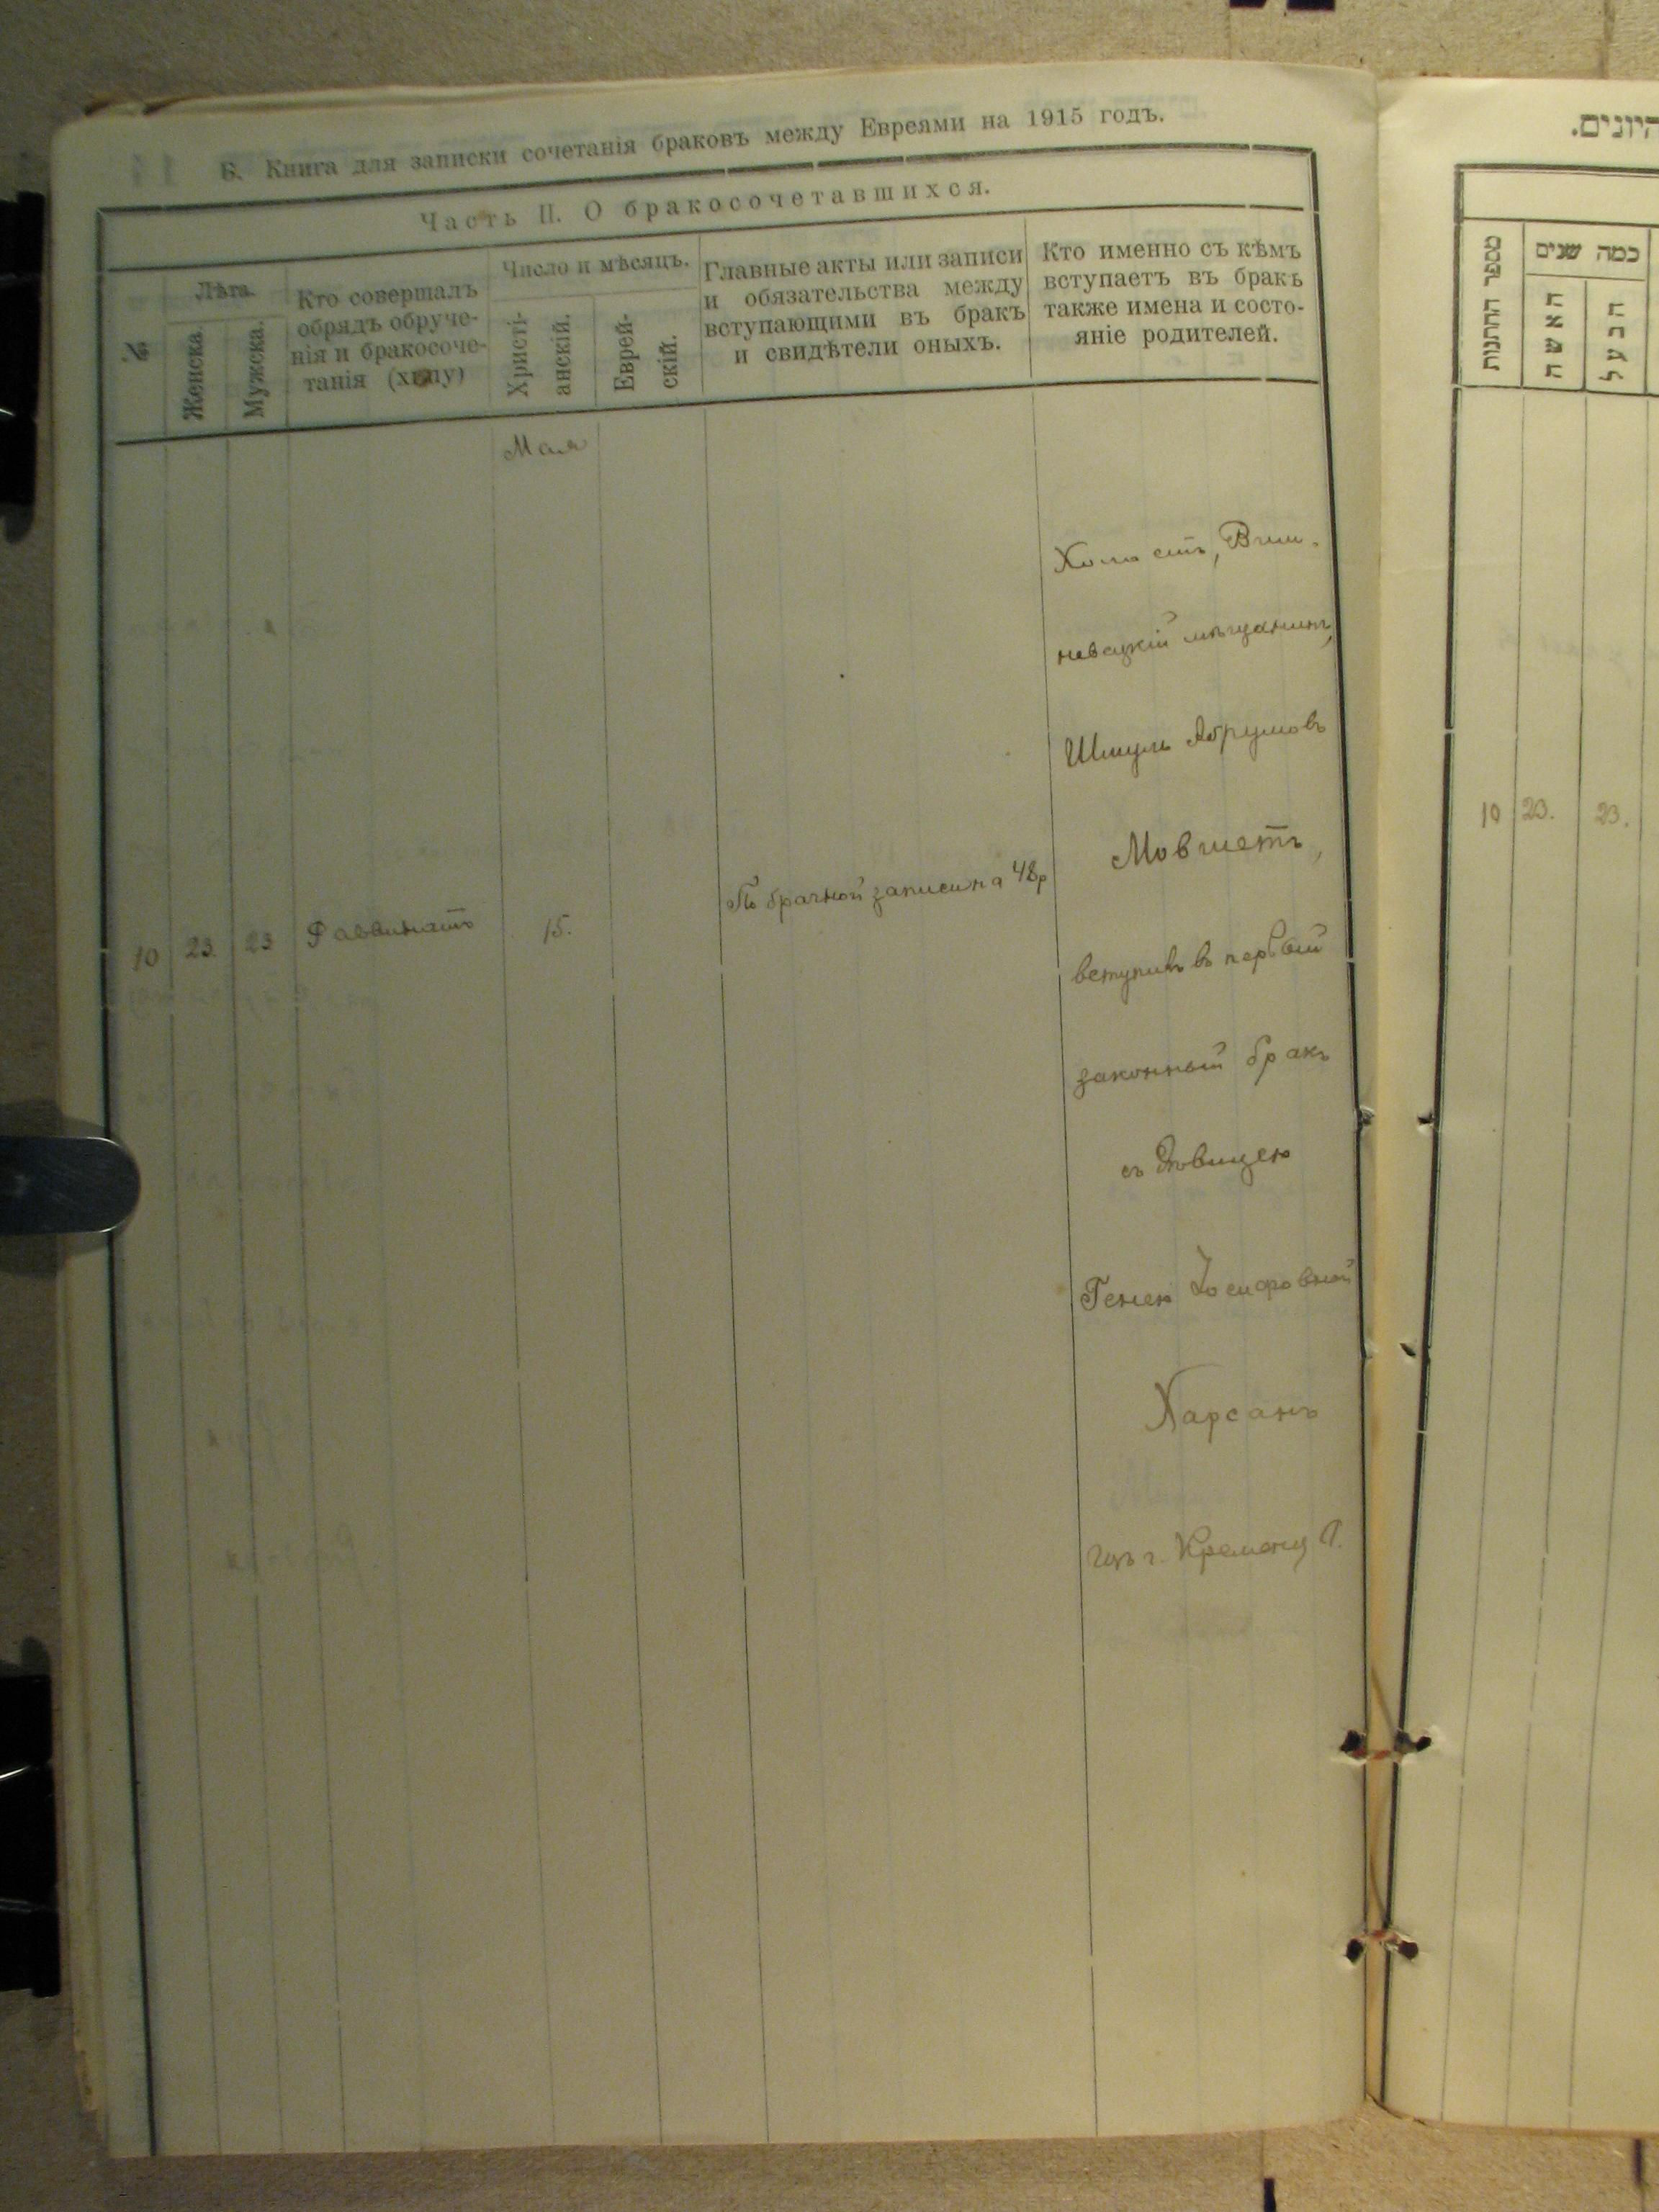 Б. Книга для записки сочетанія браковъ между Евреями на 1915 годъ.
Часть II. О бракосочетавшихся.
№
Лѣта.
Женска.
Мужска.
Кто совершалъ
обрядъ обруче-
нія и бракосоче-
танія (хупу)
Число и мѣсяцъ.
Христі-
анскій.
Еврей-
скій.
Главные акты или записи
и обязательства между
вступающими въ бракъ
и свидѣтели оныхъ.
Кто именно съ кѣмъ
вступаетъ въ бракъ
также имена и состо-
яніе родителей.
Мая
10 23. 23 Раввинатъ 15. По брачной записи на 48р
Холостъ, Виш-
невецкій мѣщанинъ,
Шмуль Абрумовъ
Мовшетъ,
вступилъ въ первый
законный бракъ
съ дѣвицею
Генею Іосифовной
Харсанъ
изъ г. Кременц
היונים.
מספר החתנות
כמה שנים
האשה
הבעל
10 23. 23.